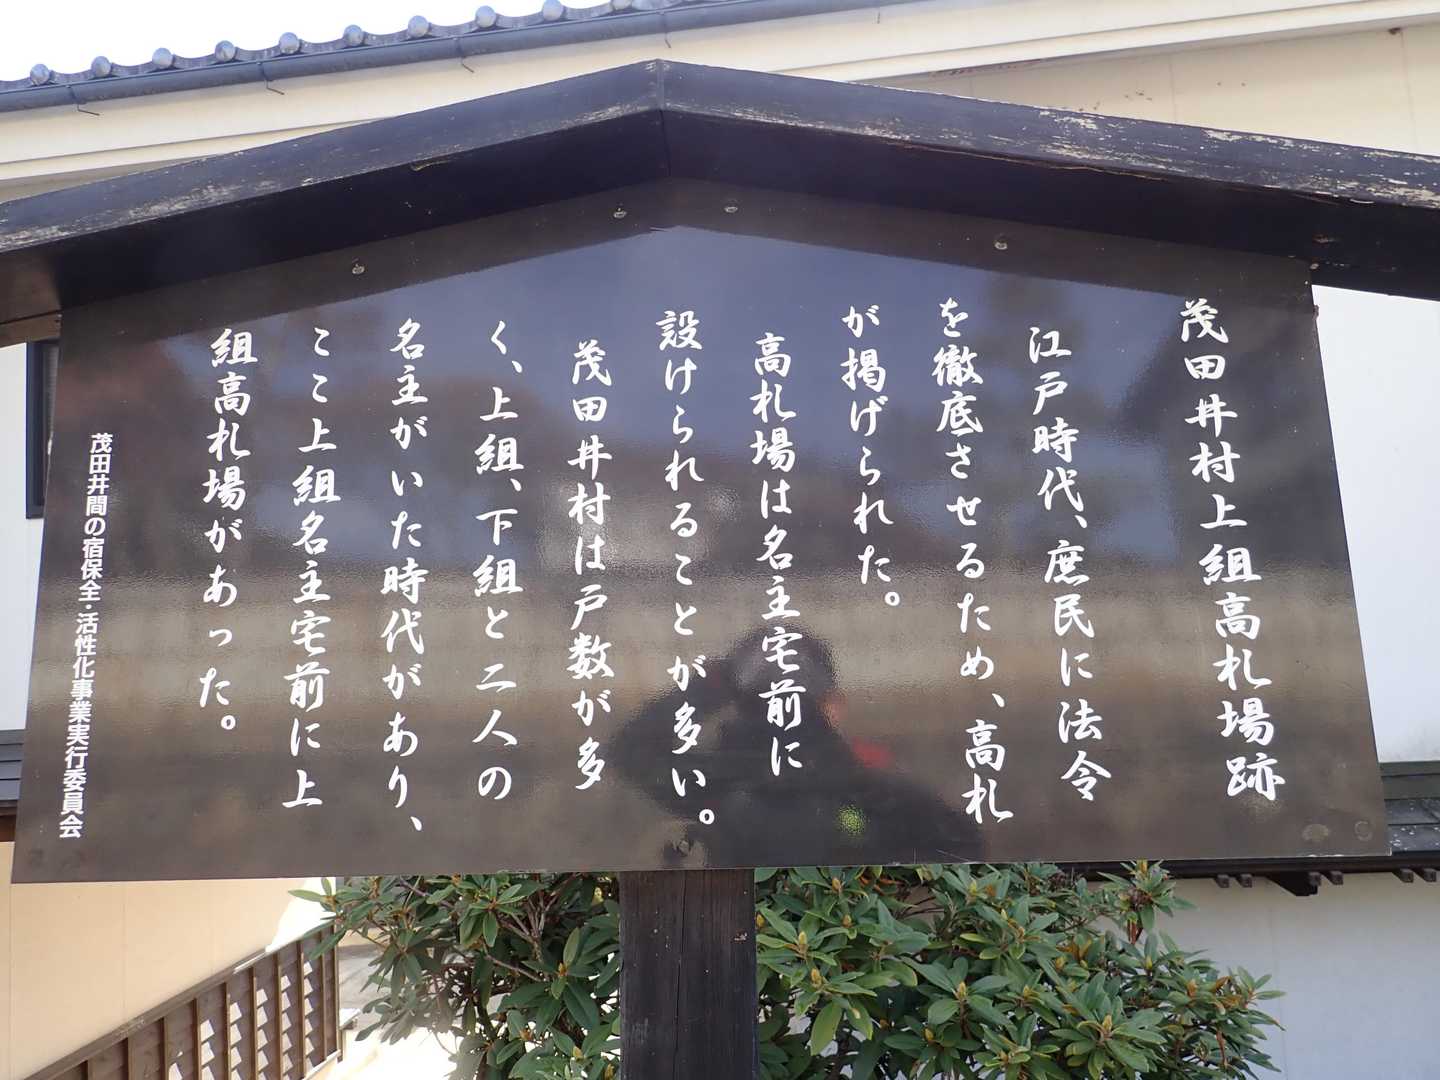 茂田井村上組高札場跡
江戸時代、庶民に法令
を徹底させるため、高札
が掲げられた。
高札場は名主宅前に
設けられることが多い。
茂田井村は戸数が多
く、上組、下組と二人の
名主がいた時代があり、
ここ上組名主宅前に上
組高札場があった。
茂田井間の宿保全・活性化事業実行委員会